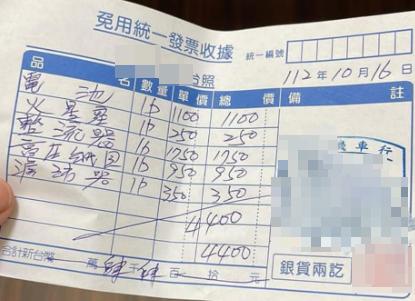 免用統一發票收據
統一編號
台照
112年10月16日
品名 數量 單價 總價 備註
電池 1P 1100 1100
火星塞 1P 250 250
整流器 1P 1750 1750
高压線圈 1P 950 950
1P 350 350
4400
4400
合計新台幣 萬肆千肆百拾元
車行
銀貨兩訖